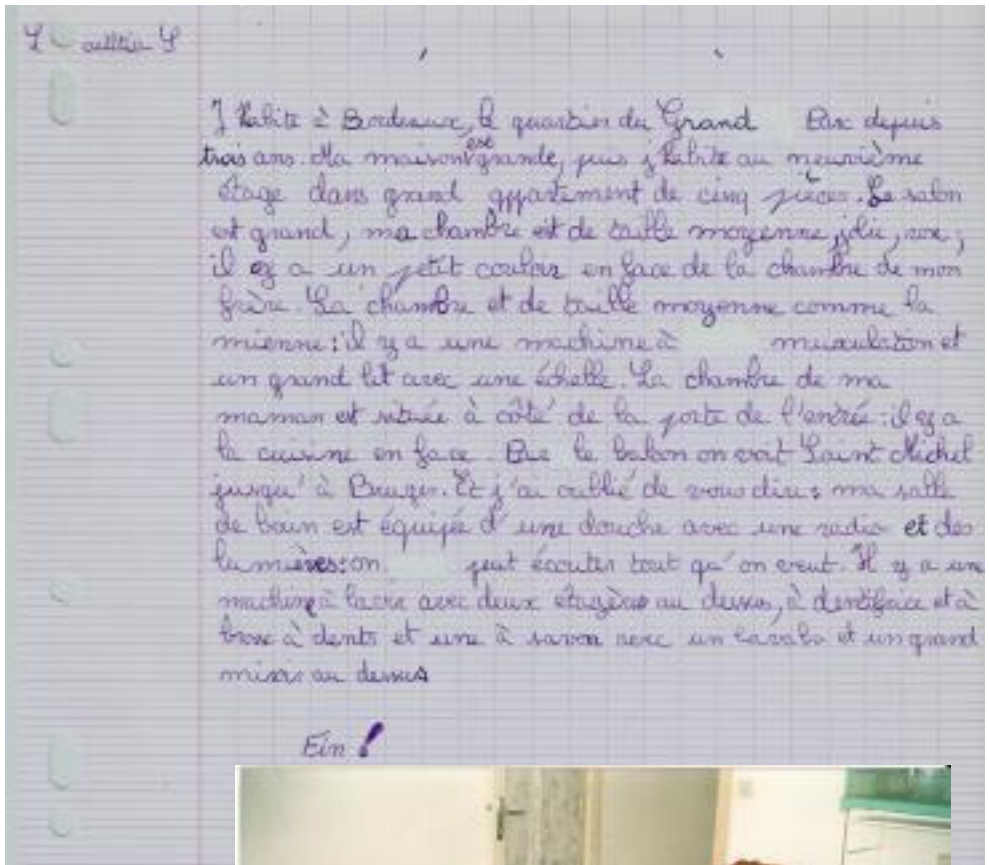 J'habite à Bordeaux, le quartier du Grand Parc depuis
trois ans. Ma maison est grande, puis j'habite au neuvième
étage dans grand appartement de cinq pièces. Le salon
est grand, ma chambre est de taille moyenne, jolie, rose ;
il y a un petit couloir en face de la chambre de mon
frère. Sa chambre et de taille moyenne comme la
mienne : il y a une machine à musculation et
un grand lit avec une échelle. La chambre de ma
maman est située à côté de la porte de l'entrée : il y a
la cuisine en face. Sur le balcon on voit Saint Michel
jusqu'à Bruges. Et j'ai oublié de vous dire : ma salle
de bain est équipée d'une douche avec une radio et des
lumières : on peut écouter tout qu'on veut. Il y a une
machine à laver avec deux étagères au dessus, à dentifrice et à
brosse à dents et une à savon avec un lavabo et un grand
miroir au dessus
Fin !